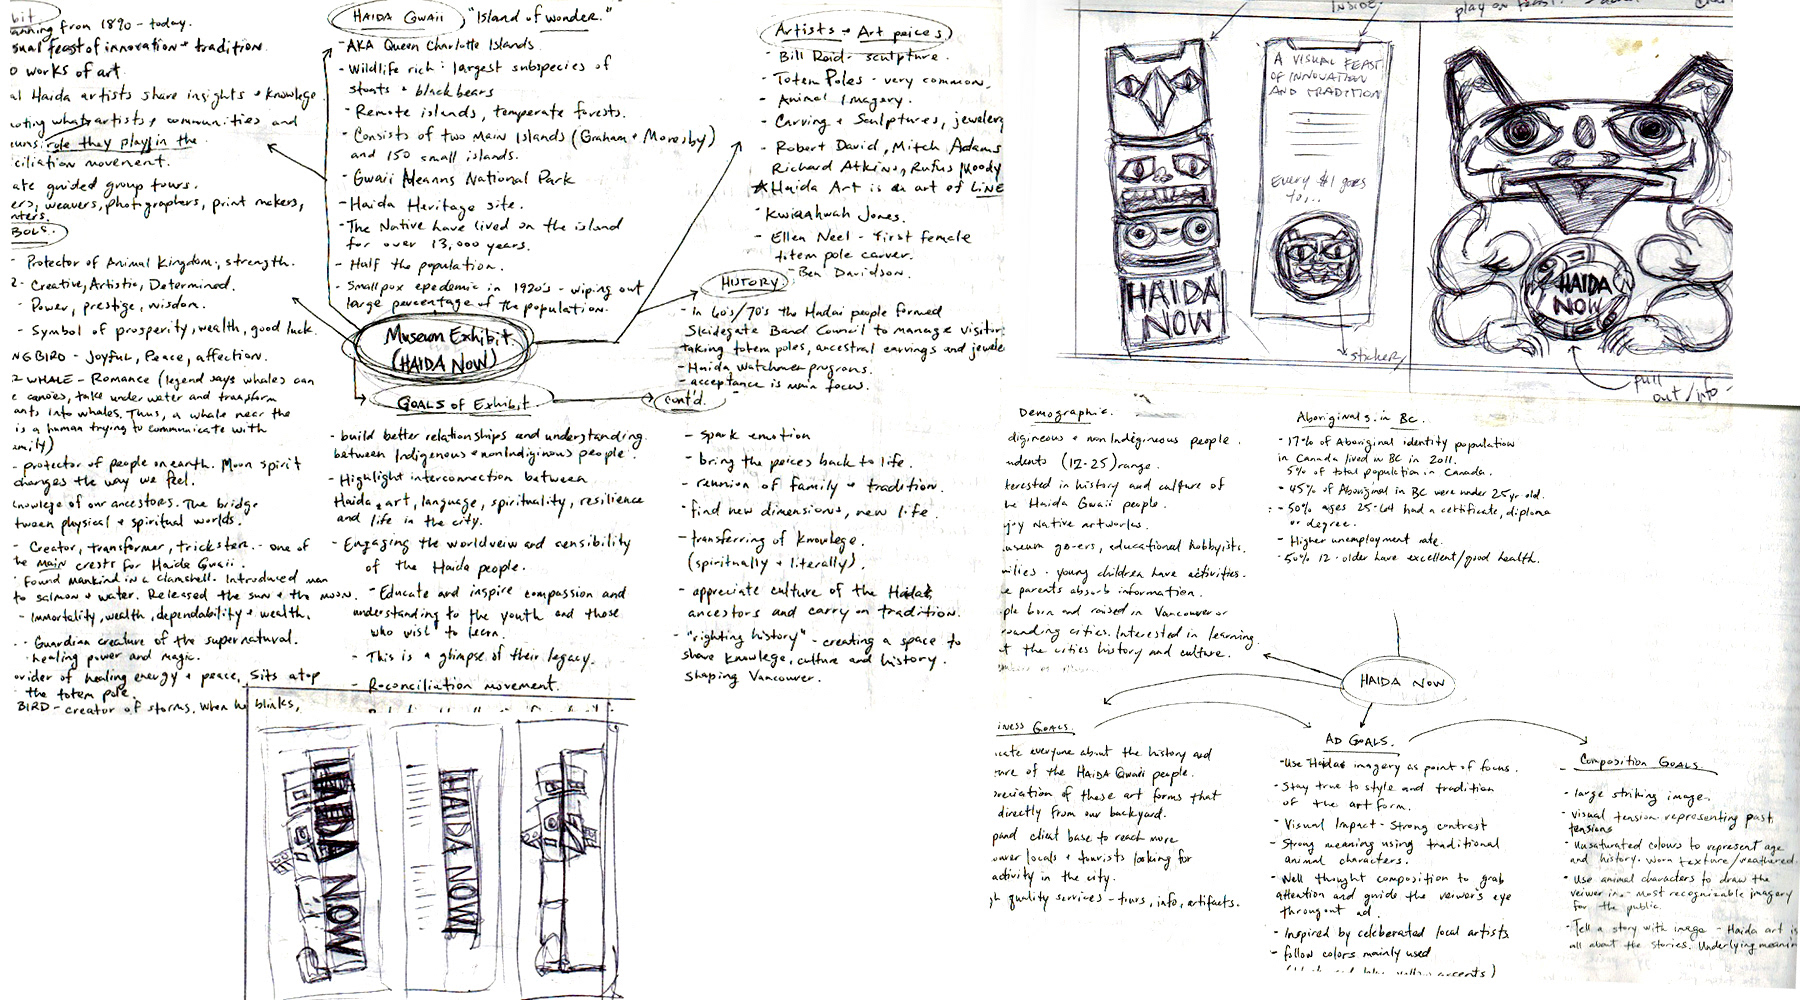 bit
anning from 1890 - today.
sual feast of innovation + tradition
o works of art.
al Haida artists share insights + knowlege.
oting what artists + communities and
uns role they play in the
ciliation movement.
ate guided group tours.
ers, weavers, photographers, print makers,
nters.
BOLS.
- Protector of Animal Kingdom, strength.
- Creative, Artistic, Determined.
- Power, prestige, wisdom.
- Symbol of prosperity, wealth, good luck.
NGBIRD - Joyful, Peace, affection.
WHALE - Romance (legend says whales can
e canoes, take under water and transform
ants into whales. Thus, a whale near the
is a human trying to communicate with
amily)
- protector of people on earth. Moon spirit
changes the way we feel.
knowlege of our ancestors. The bridge
tween physical + spiritual worlds.
- Creator, transformer, trickster. - one of
he main crests for Haida Gwaii.
- Found mankind in a clamshell. Introduced man
to salmon + water. Released the sun + the moon.
- Immortality, wealth, dependability + wealth.
- Guardian creature of the supernatural.
healing power and magic.
ovider of healing energy + peace. Sits atop
the totem pole.
BIRD - creator of storms. When he blinks,
HAIDA GWAII "Island of wonder."
- AKA Queen Charlotte Islands
- Wildlife rich: largest subspecies of
stoats + black bears
- Remote islands, temperate forests.
- Consists of two main Islands (Graham + Moresby)
and 150 small islands.
- Gwaii Haanas National Park
- Haida Heritage site.
- The Native have lived on the island
for over 13,000 years.
- Half the population.
- Smallpox epedemic in 1920's - wiping out
large percentage of the population.
Museum Exhibit.
(HAIDA NOW)
GOALS of Exhibit
- build better relationships and understanding
between Indigenous + nonIndiginous people.
- Highlight interconnection between
Haida, art, language, spirituality, resilience
and life in the city.
- Engaging the worldveiw and sensibility
of the Haida people.
- Educate and inspire compassion and
understanding to the youth and those
who visit to learn.
- This is a glimpse of their legacy.
- Reconciliation movement.
Artists + Art peices)
- Bill Reid - sculpture.
- Totem Poles - very common.
- Animal Imagery.
- Carving + Sculptures, jewelery
- Robert David, Mitch Adams
Richard Atkins, Rufus Moody
Haida Art is an art of LINE
- Kwiaahwah Jones.
- Ellen Neel - first female
totem pole carver.
- Ben Davidson.
HISTORY
- In 60's/70's the Hadai people formed
Skidegate Band Council to manage visitor
taking totem poles, ancestral carvings and jewele
- Haida Watchmen programs.
- acceptance is main focus.
cont'd.
- spark emotion
- bring the peices back to life.
- reunion of family + tradition.
- find new dimensions, new life.
- transferring of knowlege.
(spiritually + literally).
- appreciate culture of the Haida
ancestors and carry on tradition.
- "righting history" - creating a space to
share knowlege, culture and history.
shaping Vancouver.
INSIDE.
play on feast.
HAIDA
NOW
A VISUAL FEAST
OF INNOVATION
AND TRADITION
Every $1 goes
to...
sticker
HAIDA
NOW
pull
out/info
Demographic.
digineous + non Indigineous people.
udents (12-25) range.
terested in history and culture of
he Haida Gwaii people.
joy Native artworks.
useum go-ers, educational hobbyists.
milies - young children have activities.
e parents absorb information.
ple born and raised in Vancouver or
rounding cities. Interested in learning
t the cities history and culture.
Aboriginals in BC.
- 17% of Aboriginal identity population
in Canada lived in BC in 2011.
5% of total population in Canada.
- 45% of Aboriginal in BC were under 25 yr old.
- 50% ages 25-64 had a certificate, diploma
or degree.
- Higher unemployment rate.
- 50% 12-older have excellent/good health.
HAIDA NOW
INESS GOALS.
cate everyone about the history and
ure of the HAIDA Gwaii people.
preciation of these art forms that
directly from our backyard.
pand client base to reach more
ouver locals + tourists looking for
activity in the city.
gh quality services - tours, info, artifacts.
AD GOALS.
- Use Haida imagery as point of focus.
- Stay true to style and tradition
of the art form.
- Visual Impact - Strong contrast
- Strong meaning using traditional
animal characters.
- Well thought composition to grab
attention and guide the veiwer's eye
throughout ad.
- Inspired by celeberated local artists
- follow colors mainly used
Composition GOALS.
- large striking image.
- visual tension representing past
tensions
- Unsaturated colours to represent age
and history. Worn texture/weathered.
- Use animal characters to draw the
veiwer in - most recognizable imagery
for the public.
- Tell a story with image - Haida art is
all about the stories. Underlying meanin
HAIDA NOW
HAIDA NOW